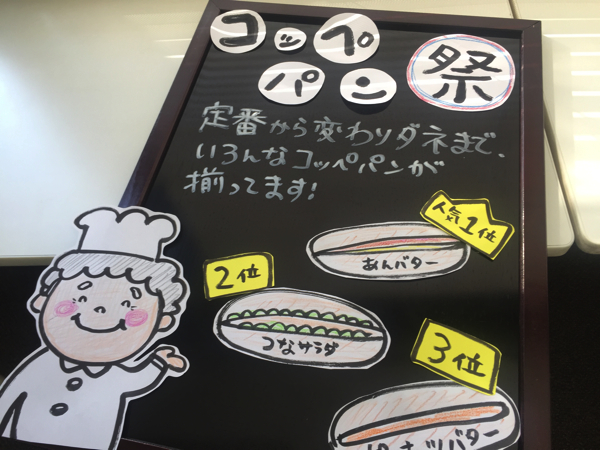 コッペ
パン
祭
定番から変わりダネまで、
いろんなコッペパンが
揃ってます!
人気1位
あんバター
2位
ツナサラダ
3位
ピーナッツバター